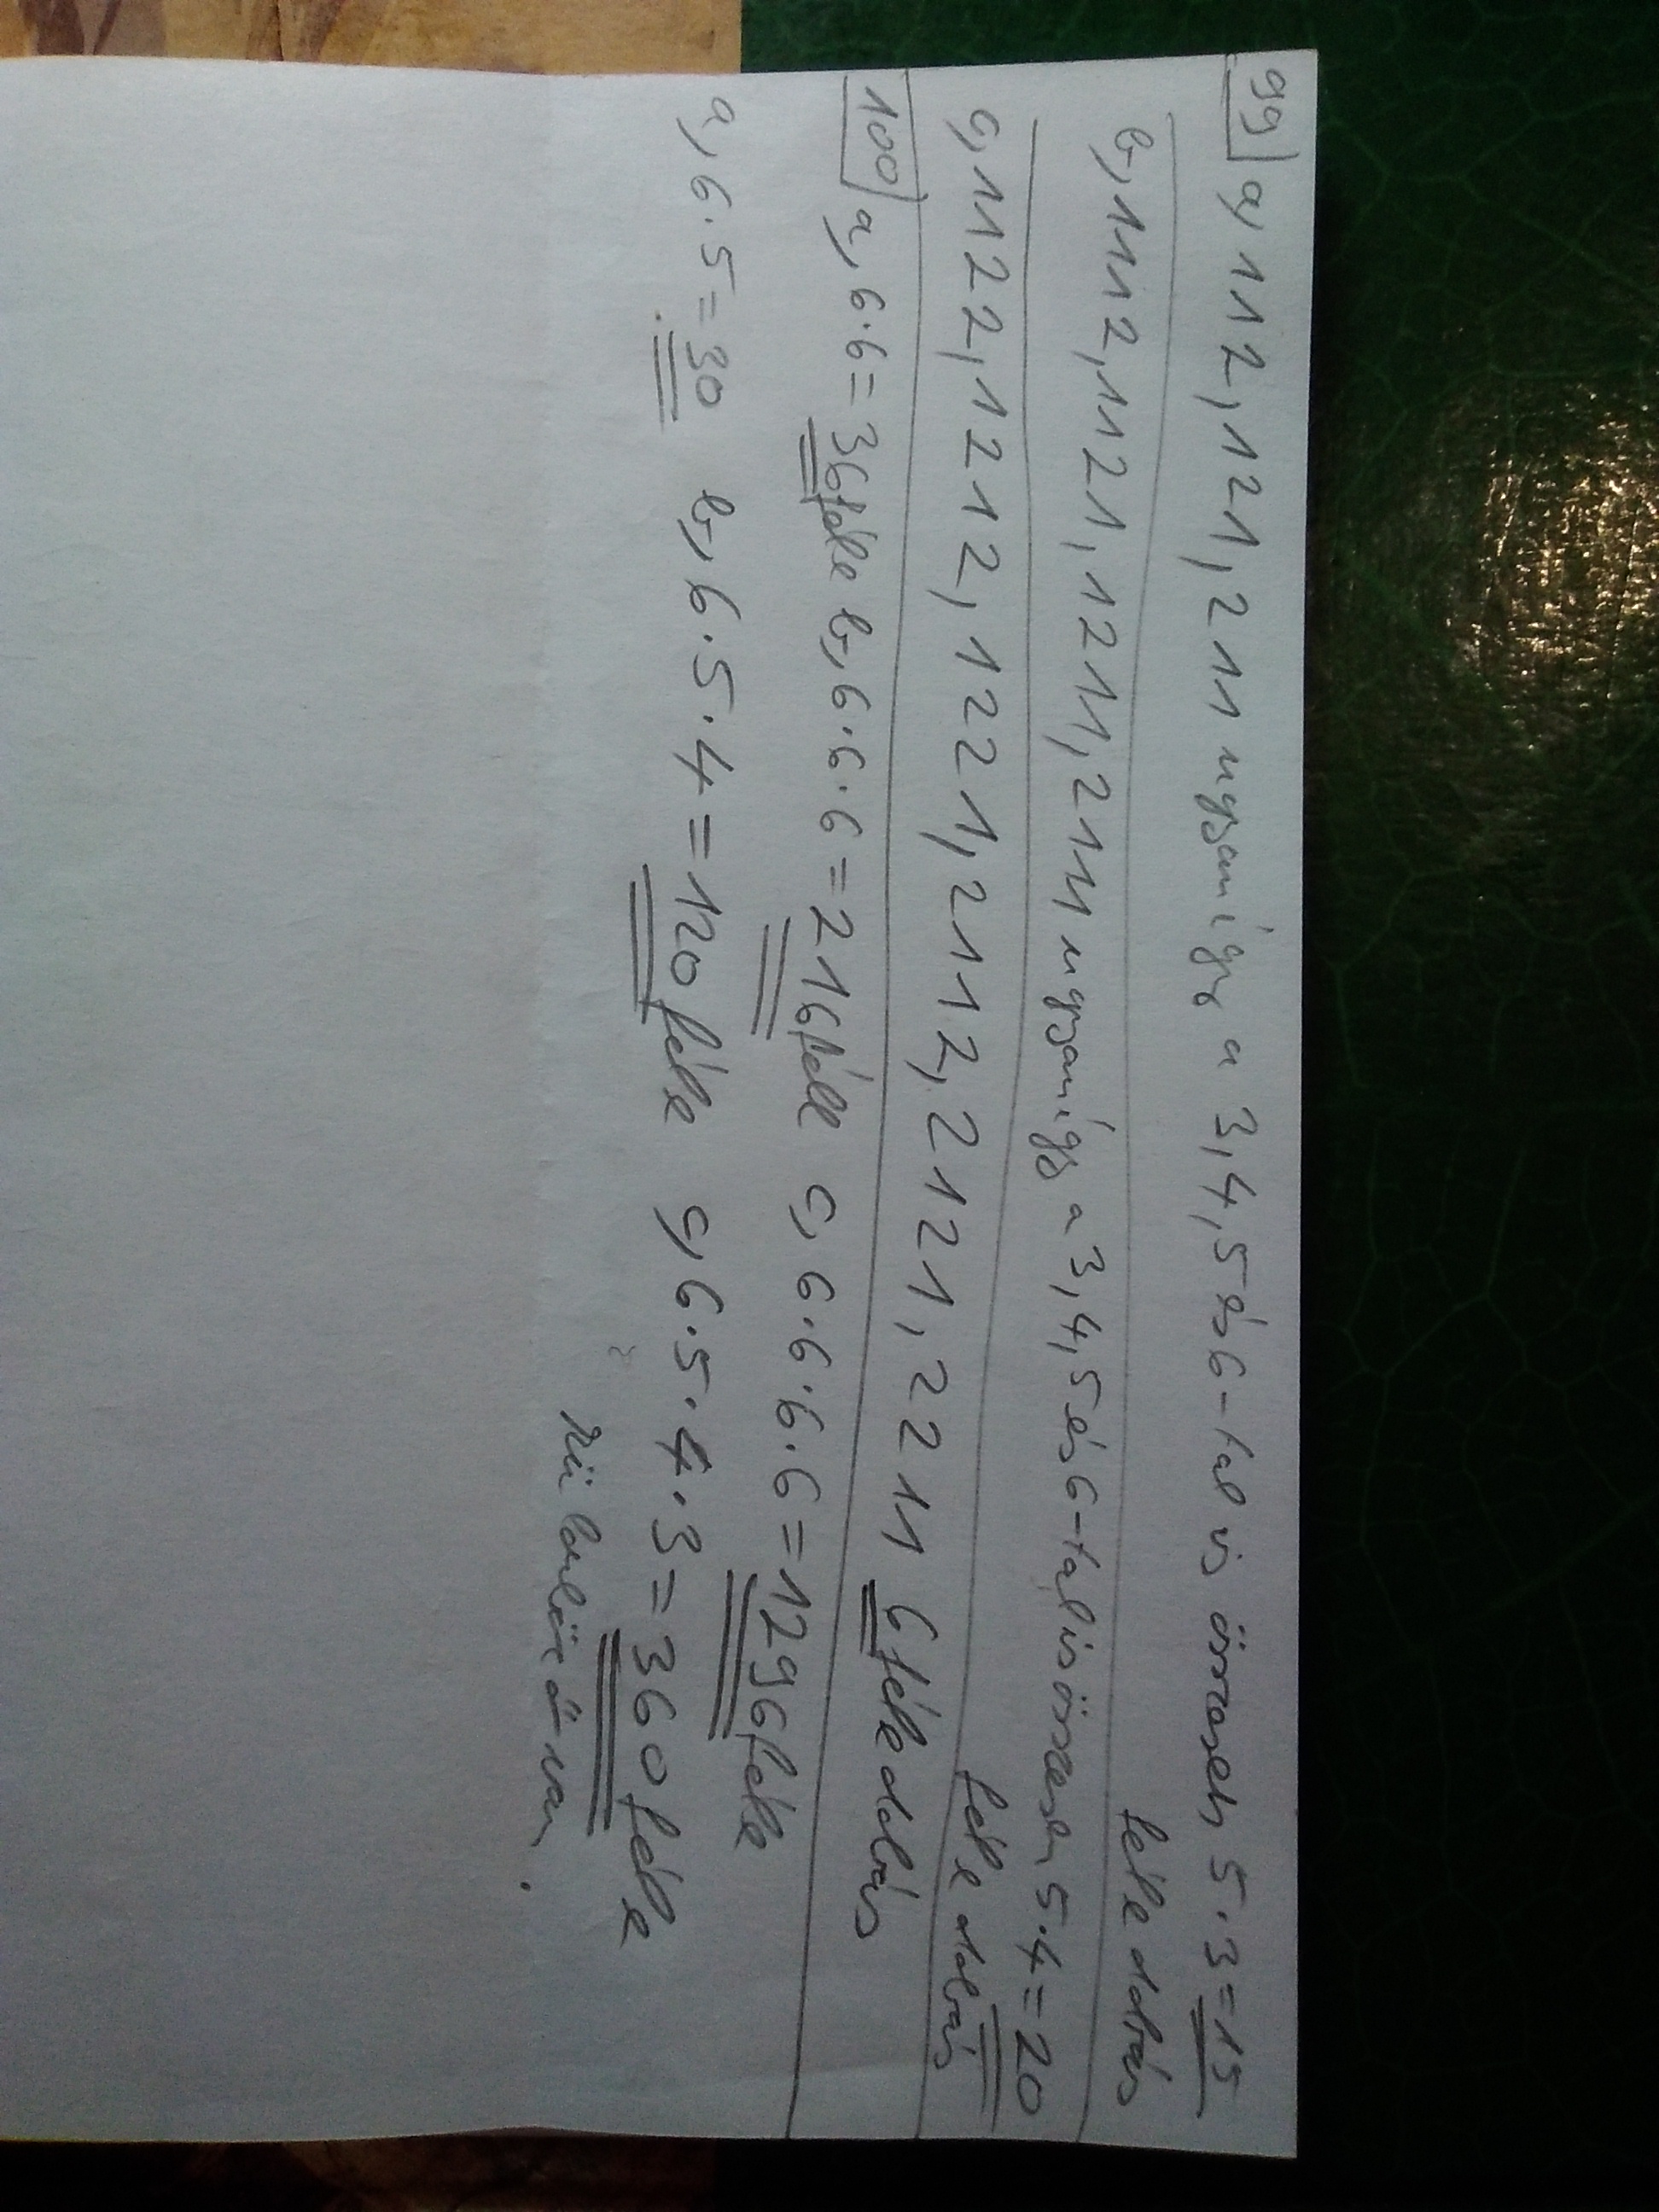 99 a, 112, 121, 211 ugyanígy a 3,4,5 és 6-tal is összesen 5·3=15
féle dobás
b, 1112, 1121, 1211, 2111 ugyanígy a 3,4,5 és 6-tal is összesen 5·4=20
féle dobás
c, 1122, 1212, 1221, 2112, 2121, 2211 6 féle dobás
100 a, 6·6=36féle b, 6·6·6=216féle c, 6·6·6·6=1296féle
a, 6·5=30 b, 6·5·4=120féle c, 6·5·4·3=360féle
van.